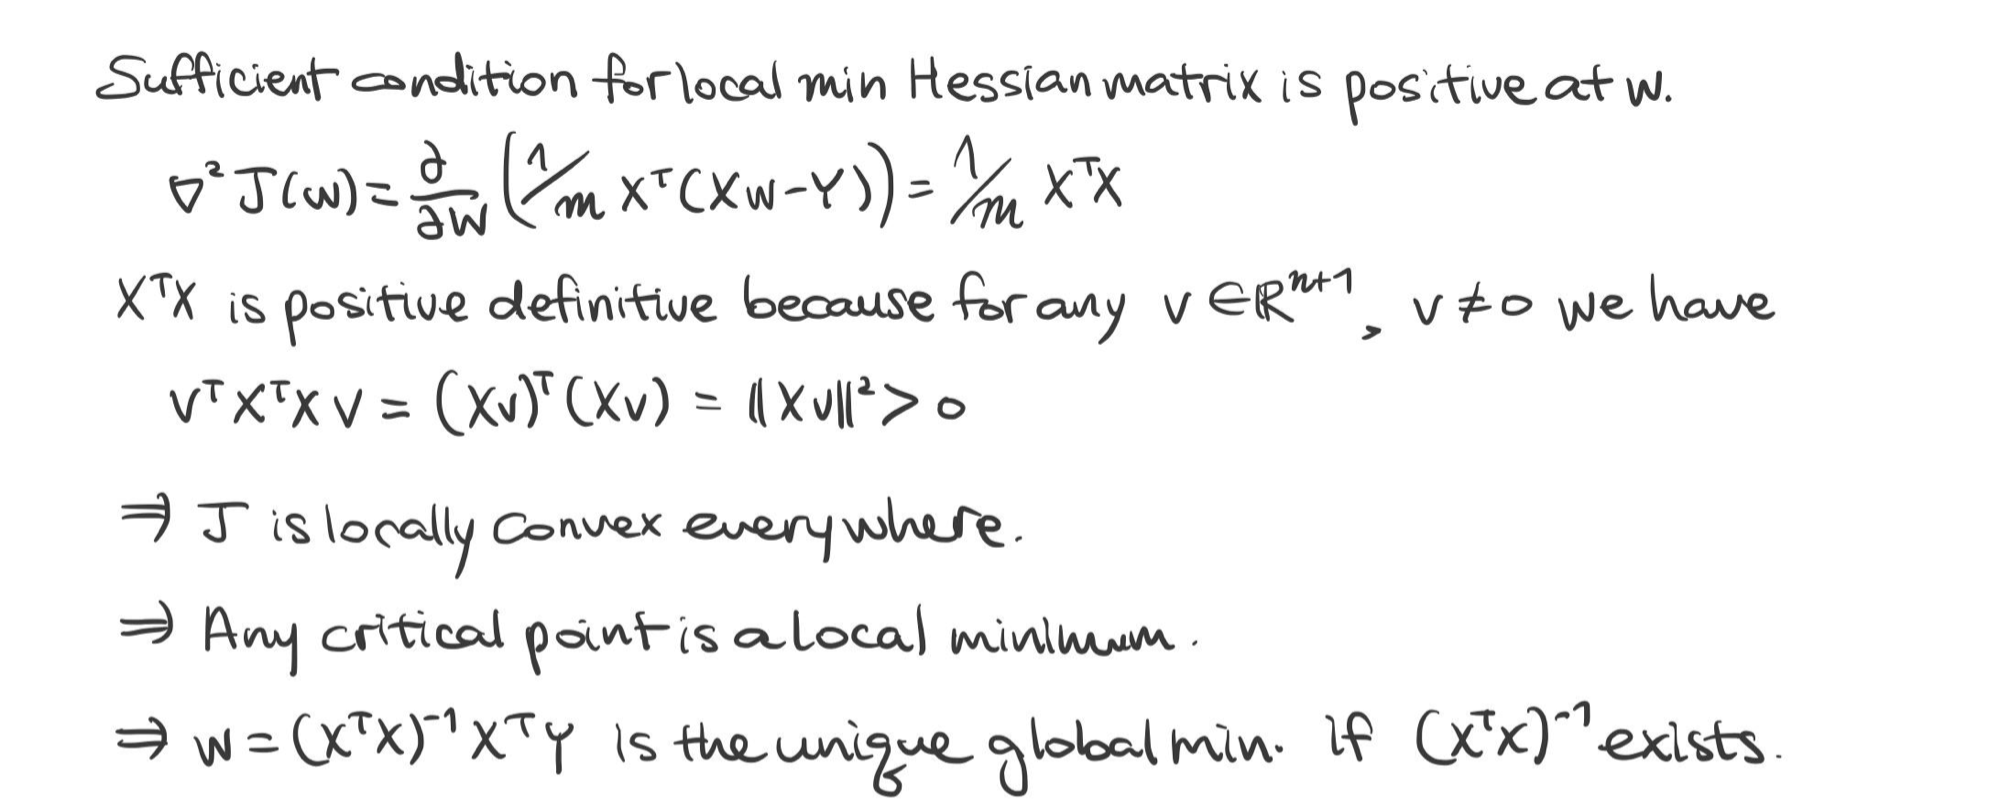 Sufficient condition for local min Hessian matrix is positive at w.
∇² J(w) = ∂/∂w (1/m Xᵀ(Xw-Y)) = 1/m XᵀX
XᵀX is positive definitive because for any v ∈ ℝⁿ⁺¹, v ≠ 0 we have
vᵀXᵀX v = (Xv)ᵀ(Xv) = ||Xv||² > 0
⇒ J is locally convex everywhere.
⇒ Any critical point is a local minimum.
⇒ w = (XᵀX)⁻¹XᵀY is the unique global min. if (XᵀX)⁻¹ exists.